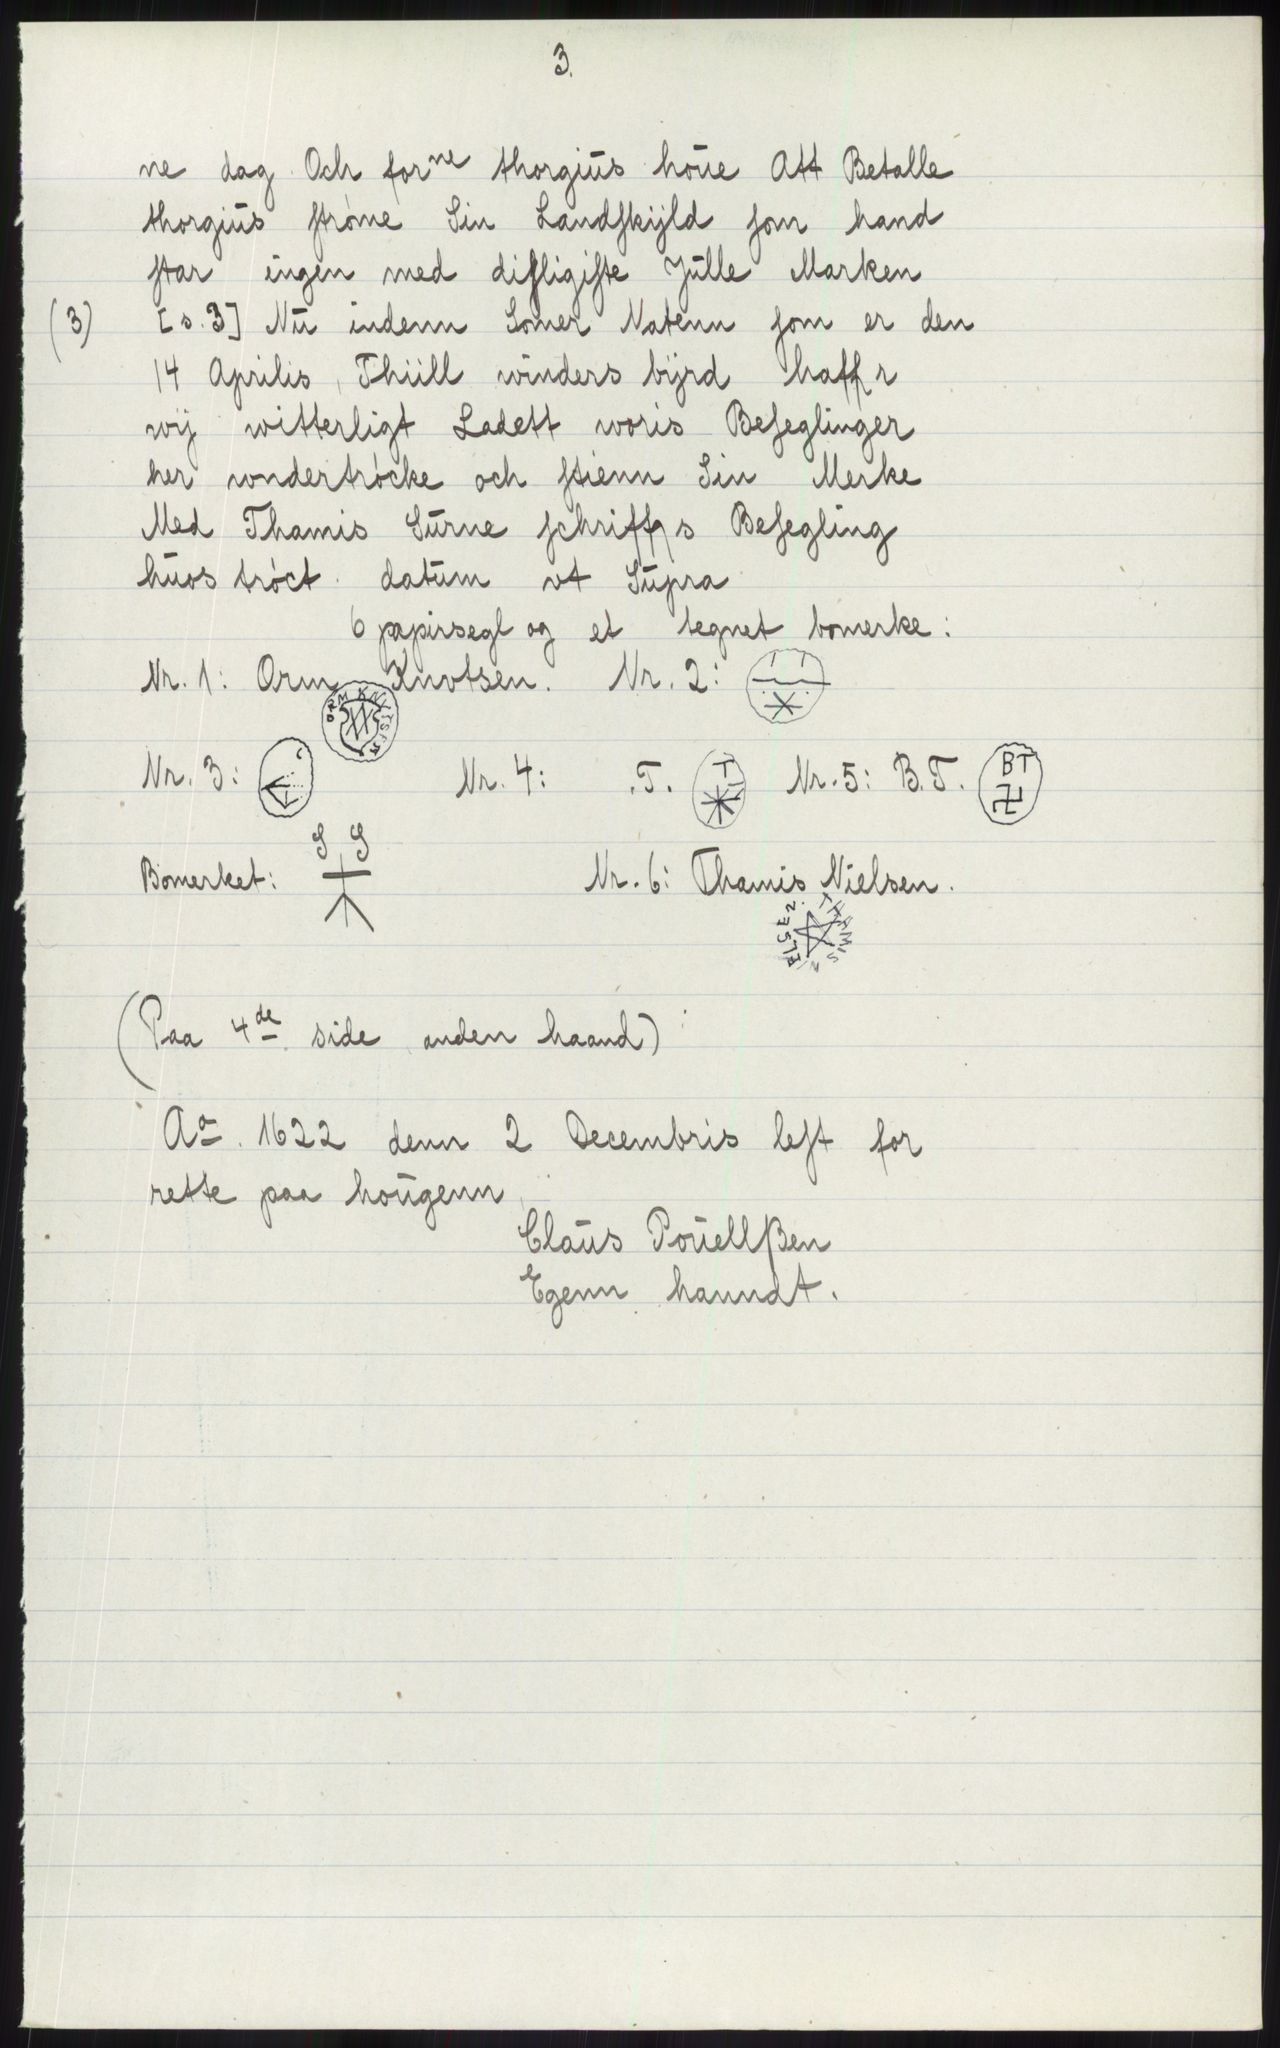 3.
ne dag. Och forne thorgiūs hōue Att Betalle
thorgius ſtróme Sin Landſkÿld ſom hand
ſtar ingen med diſligiſte Jūlle Marken
(3) [s. 3] Nū indenn Somer Natenn ſom er den
14 Aprilis, Thiill winders bÿrd haffr
wij witterligt Ladett woris Beſeglinger
her wndertrócke och ſtienn Sin Merke
Med Thamis Sūrne ſchriffs Beſegling
hūos tróct. datum vt Sūpra
6 papirsegl og et tegnet bomerke:
Nr. 1: Orm Knvtsen. Nr. 2:
ORM KNVTSEN
Nr. 3: Nr. 4: .T. T Nr. 5: B.T. BT
S S
Bomerket: Nr. 6: Thamis Nielsen.
THAMIS NIELSEN
(Paa 4de side anden haand):
Ao. 1622 denn 2 Decembris leſt for
rette paa hoūgenn
Claūs Poūellßen
Egenn hanndt.